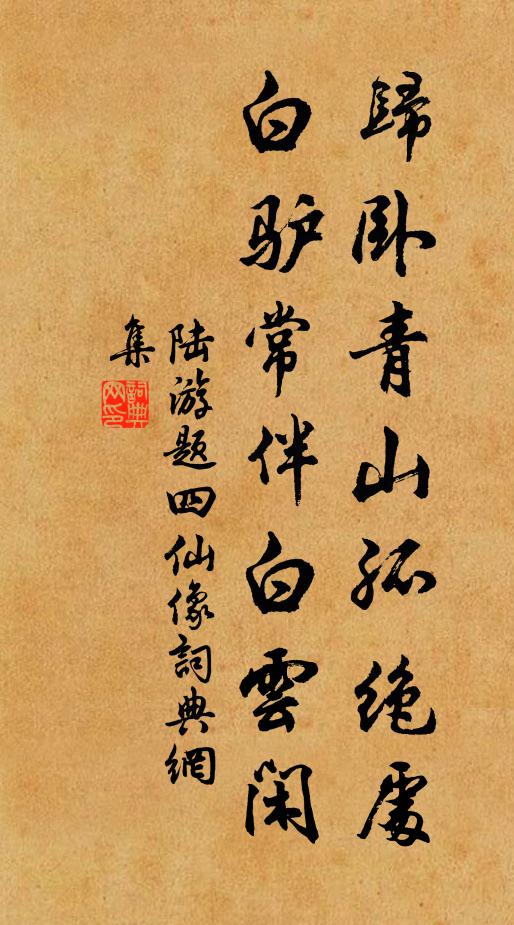 歸卧青山孤绝處
白驴常伴白雲閑
陆游题四仙像詞典網
集
詞典網印